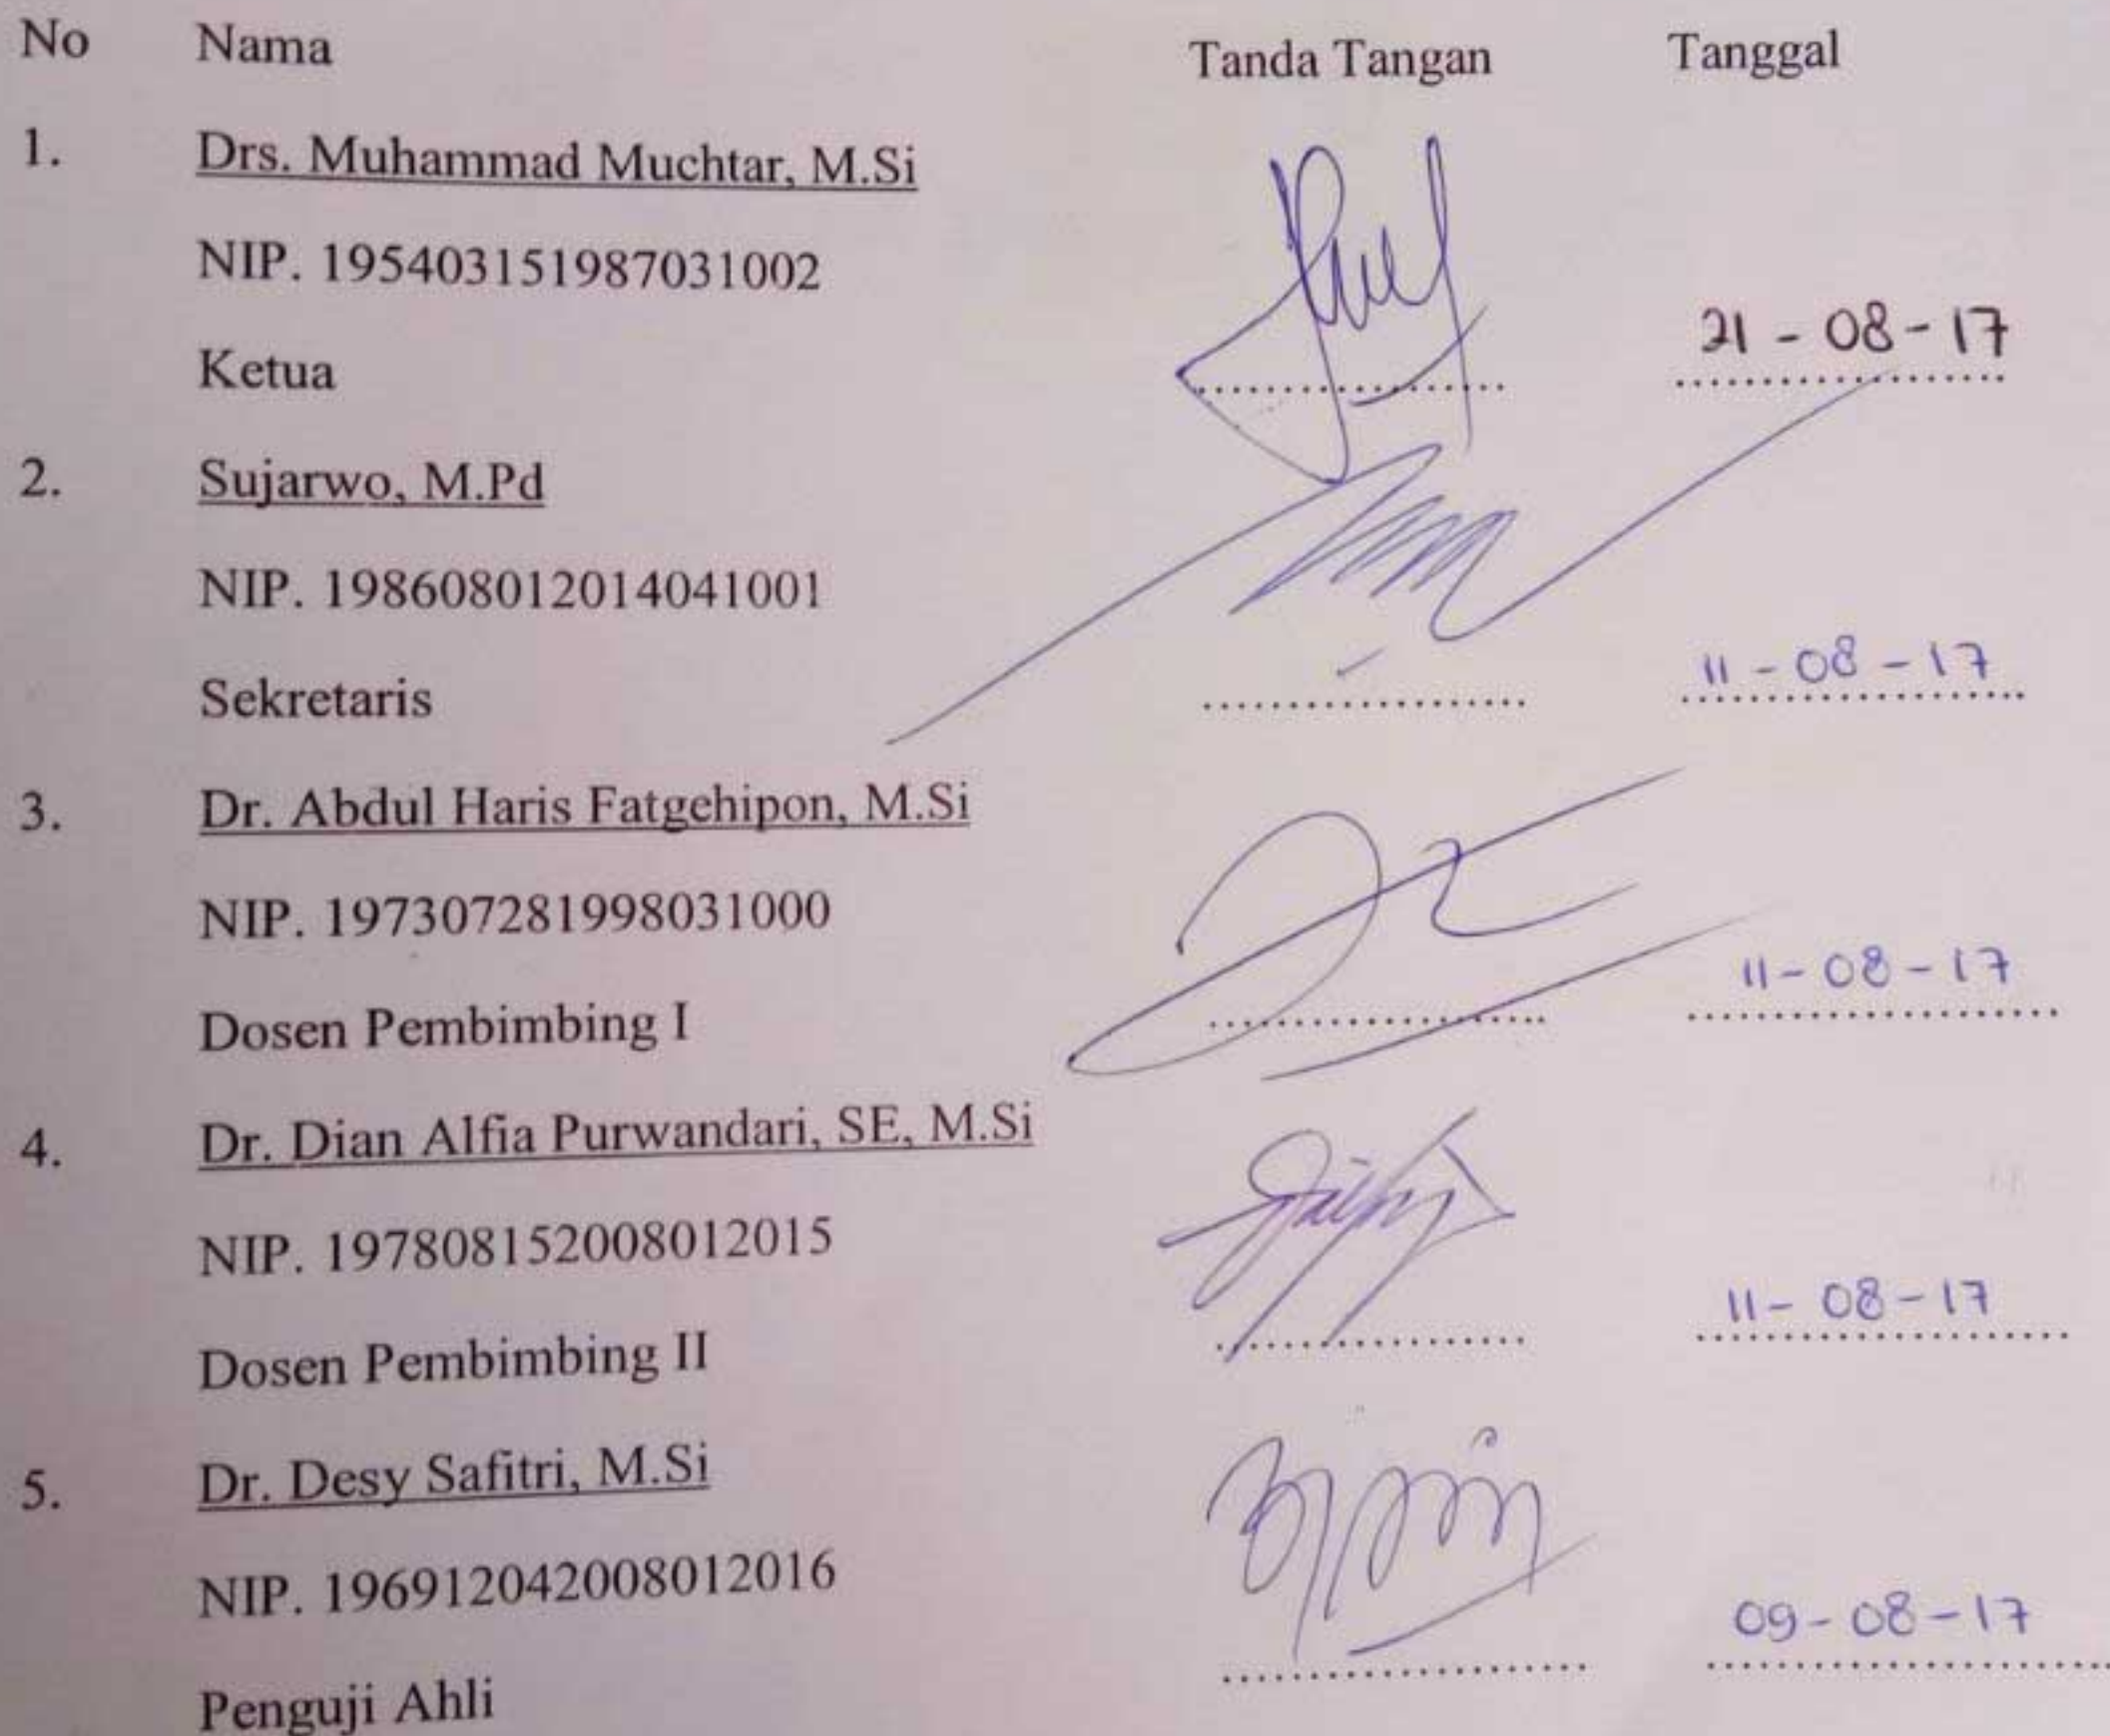 No Nama Tanda Tangan Tanggal
1. Drs. Muhammad Muchtar, M.Si
NIP. 195403151987031002
Ketua .................... 21 - 08 - 17
2. Sujarwo, M.Pd
NIP. 198608012014041001
Sekretaris .................... 11 - 08 - 17
3. Dr. Abdul Haris Fatgehipon, M.Si
NIP. 197307281998031000
Dosen Pembimbing I .................... 11 - 08 - 17
4. Dr. Dian Alfia Purwandari, SE, M.Si
NIP. 197808152008012015
Dosen Pembimbing II .................... 11 - 08 - 17
5. Dr. Desy Safitri, M.Si
NIP. 196912042008012016
Penguji Ahli .................... 09 - 08 - 17